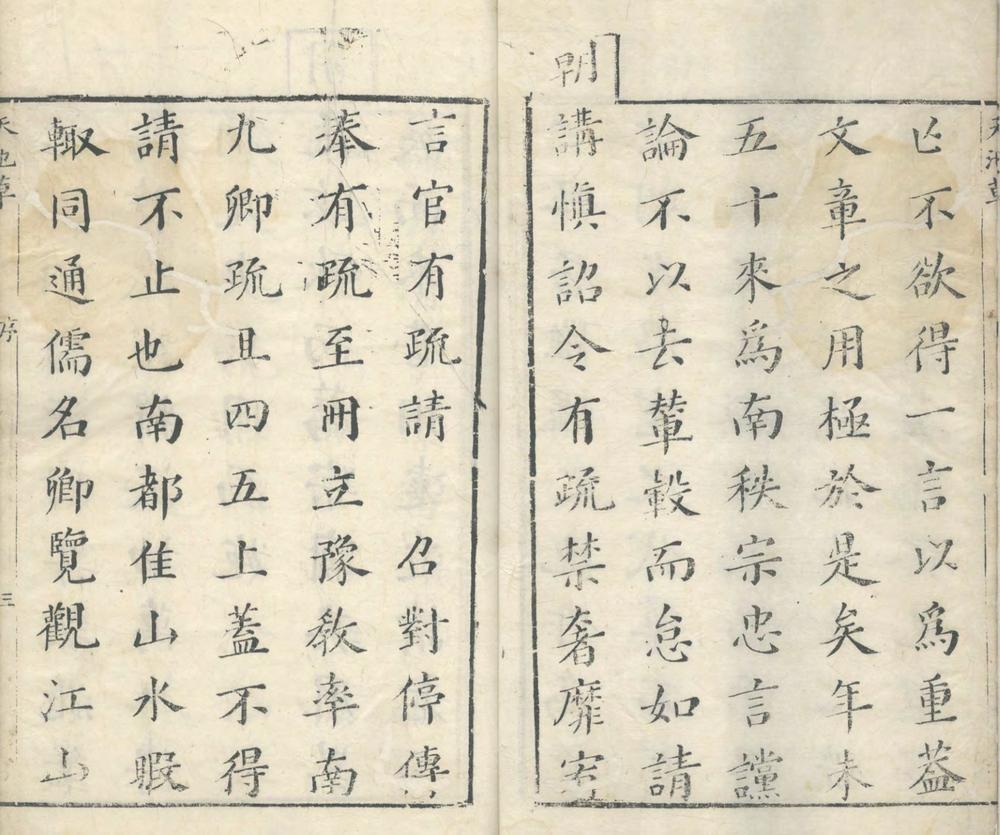 天池草
亡不欲得一言以爲重葢
文章之用極於是矣年未
五十來爲南秩宗忠言讜
論不以去輦轂而怠如請
朝講愼詔令有疏禁奢靡
言官有疏請 召對停傳
奉有疏至冊立豫敎率南
九卿疏且四五上蓋不得
請不止也南都佳山水暇
輙同通儒名卿覽觀江山
天池草 序 三